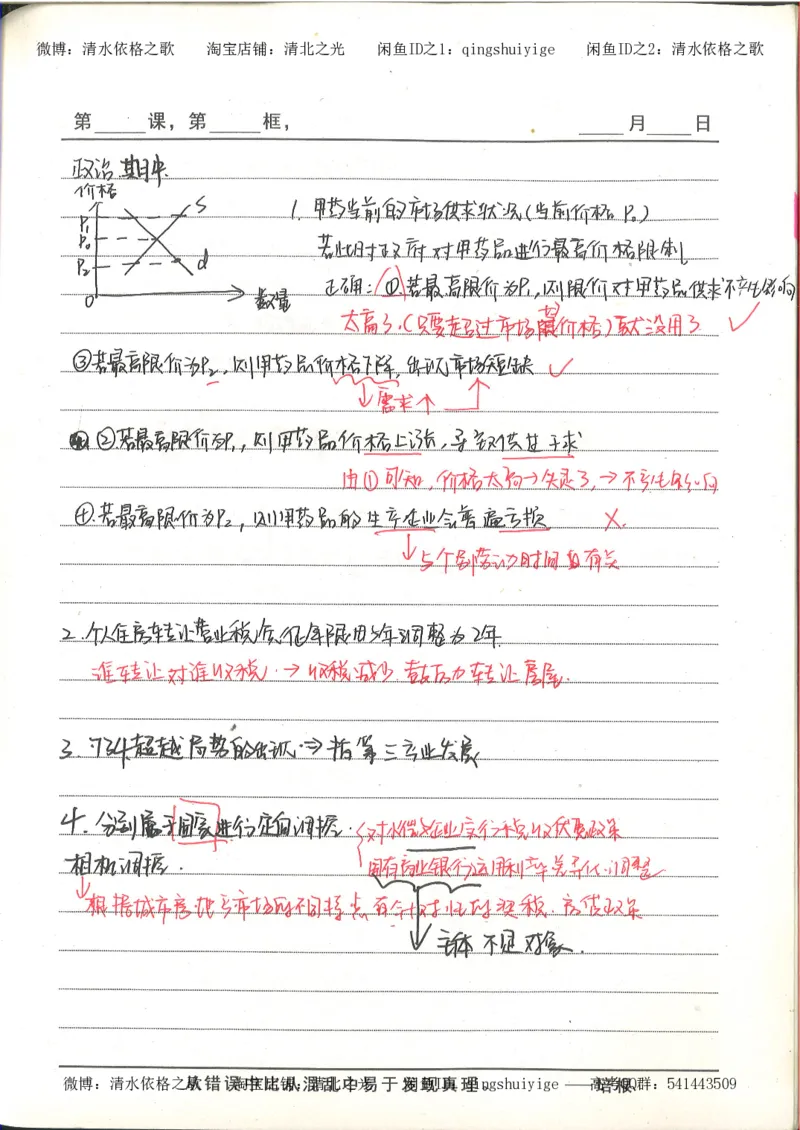 微博：清水依格之歌 淘宝店铺：清北之光 闲鱼ID之1：qingshuiyige 闲鱼ID之2：清水依格之歌
第 课，第 框， 月 日
政治 期中
价格
S
P₁
P₀
P₂
d
0
数量
1. 甲药当前的市场供求状况（当前价格P₀）
若此时政府对甲药品进行最高价格限制
正确：①若最高限价为P₁,则限价对甲药品供求不产生影响
太高了.(只要超过市场价格)就没用了 ✓
③若最高限价为P₂，则甲药品价格下降，出现市场短缺 ✓
↓需求↑
②若最高限价为P₁，则甲药品价格上涨，导致供过于求
由①可知，价格太高→失灵了，→不产生影响
④.若最高限价为P₂，则甲药品的生产企业会普遍亏损 ×.
↓与个别劳动时间有关
2.个人住房转让营业税免征年限由5年调整为2年
谁转让对谁收税.→收税减少 鼓励转让房屋.
3. 734超越局势的出现.→指第三产业发展
4.分别属于国家进行定向调控.
对小微企业实行税收优惠政策
相机调控.
国有商业银行运用利率差异化调整
↓根据城市房地产市场的不同特点有针对性的契税.房贷政策
主体 不是对象.
微博：清水依格之歌 淘宝店铺：清北之光 闲鱼ID：qingshuiyige 高考QQ群：541443509
从错误中比从混乱中易于发现真理。 ——培根